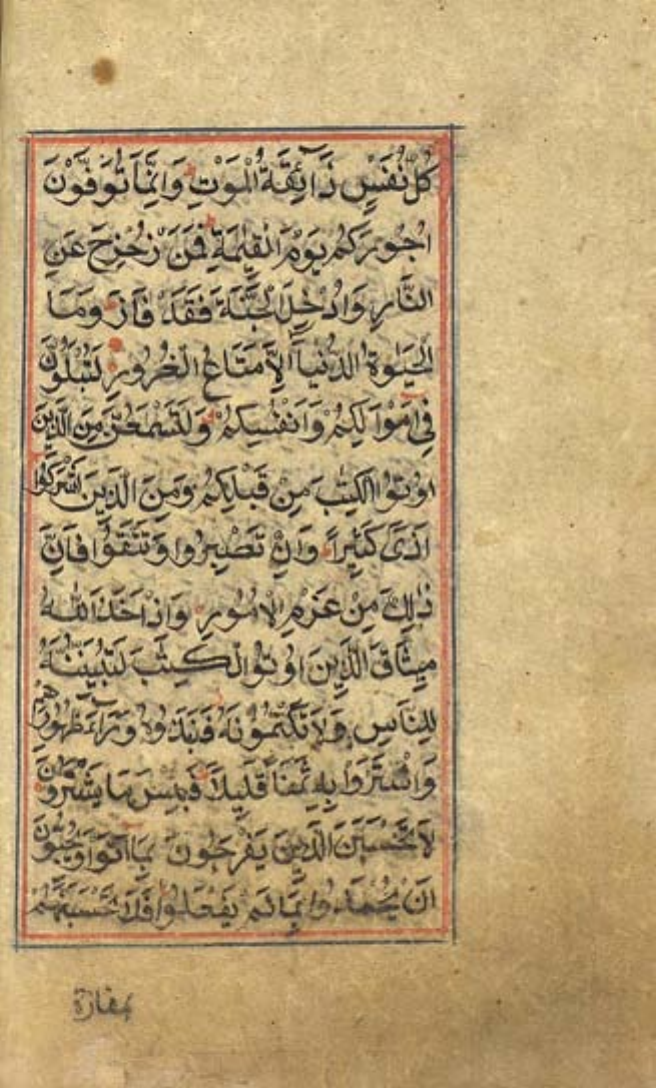 كُلُّ نَفْسٍ ذَائِقَةُ الْمَوْتِ وَاِنَّمَا تُوَفَّوْنَ
اُجُورَكُمْ يَوْمَ الْقِيٰمَةِ فَمَنْ زُحْزِحَ عَنِ
النَّارِ وَاُدْخِلَ الْجَنَّةَ فَقَدْ فَازَ وَمَا
الْحَيٰوةُ الدُّنْيَا اِلَّا مَتَاعُ الْغُرُورِ لَتُبْلَوُنَّ
فِى اَمْوَالِكُمْ وَاَنْفُسِكُمْ وَلَتَسْمَعُنَّ مِنَ الَّذِينَ
اُوتُوا الْكِتٰبَ مِنْ قَبْلِكُمْ وَمِنَ الَّذِينَ اَشْرَكُوا
اَذًى كَثِيرًا وَاِنْ تَصْبِرُوا وَتَتَّقُوا فَاِنَّ
ذٰلِكَ مِنْ عَزْمِ الْاُمُورِ وَاِذْ اَخَذَ اللّٰهُ
مِيثَاقَ الَّذِينَ اُوتُوا الْكِتٰبَ لَتُبَيِّنُنَّهُ
لِلنَّاسِ وَلَا تَكْتُمُونَهُ فَنَبَذُوهُ وَرَاءَ ظُهُورِهِمْ
وَاشْتَرَوْا بِهِ ثَمَنًا قَلِيلًا فَبِئْسَ مَا يَشْتَرُونَ
لَا تَحْسَبَنَّ الَّذِينَ يَفْرَحُونَ بِمَا اَتَوْا وَيُحِبُّونَ
اَنْ يُحْمَدُوا بِمَا لَمْ يَفْعَلُوا فَلَا تَحْسَبَنَّهُمْ
بمفازة